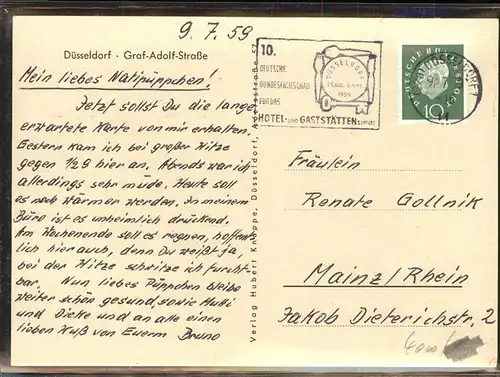 9. 7. 59
Düsseldorf · Graf-Adolf-Straße
Mein liebes Natipüppchen!
Jetzt sollst Du die lange
erwartete Karte von mir erhalten.
Gestern kam ich bei großer Hitze
gegen 1/2 9 hier an. Abends war ich
allerdings sehr müde. Heute soll
es noch wärmer werden. In meinem
Büro ist es unheimlich drückend.
Am Wochenende soll es regnen, hoffent-
lich hier auch, denn Du weißt ja,
bei der Hitze schwitze ich furcht-
bar. Nun liebes Püppchen bleibe
weiter schön gesund, sowie Mutti
und Dicke und an alle einen
lieben Kuß von Euerm Bruno
Verlag Hubert Knoppe, Düsseldorf,
10.
DEUTSCHE
BUNDESFACHSCHAU
FÜR DAS
HOTEL- UND GASTSTÄTTEN
DÜSSELDORF
1959
DEUTSCHE BUNDESPOST
10
DÜSSELDORF
Fräulein
Renate Gollnik
Mainz/Rhein
Jakob Dieterichstr. 2